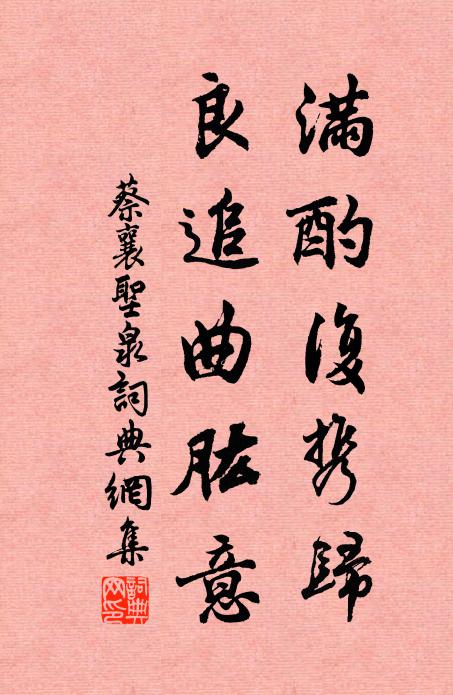 滿酌復携歸
良追曲肱意
蔡襄聖泉詞典網集
詞典网印